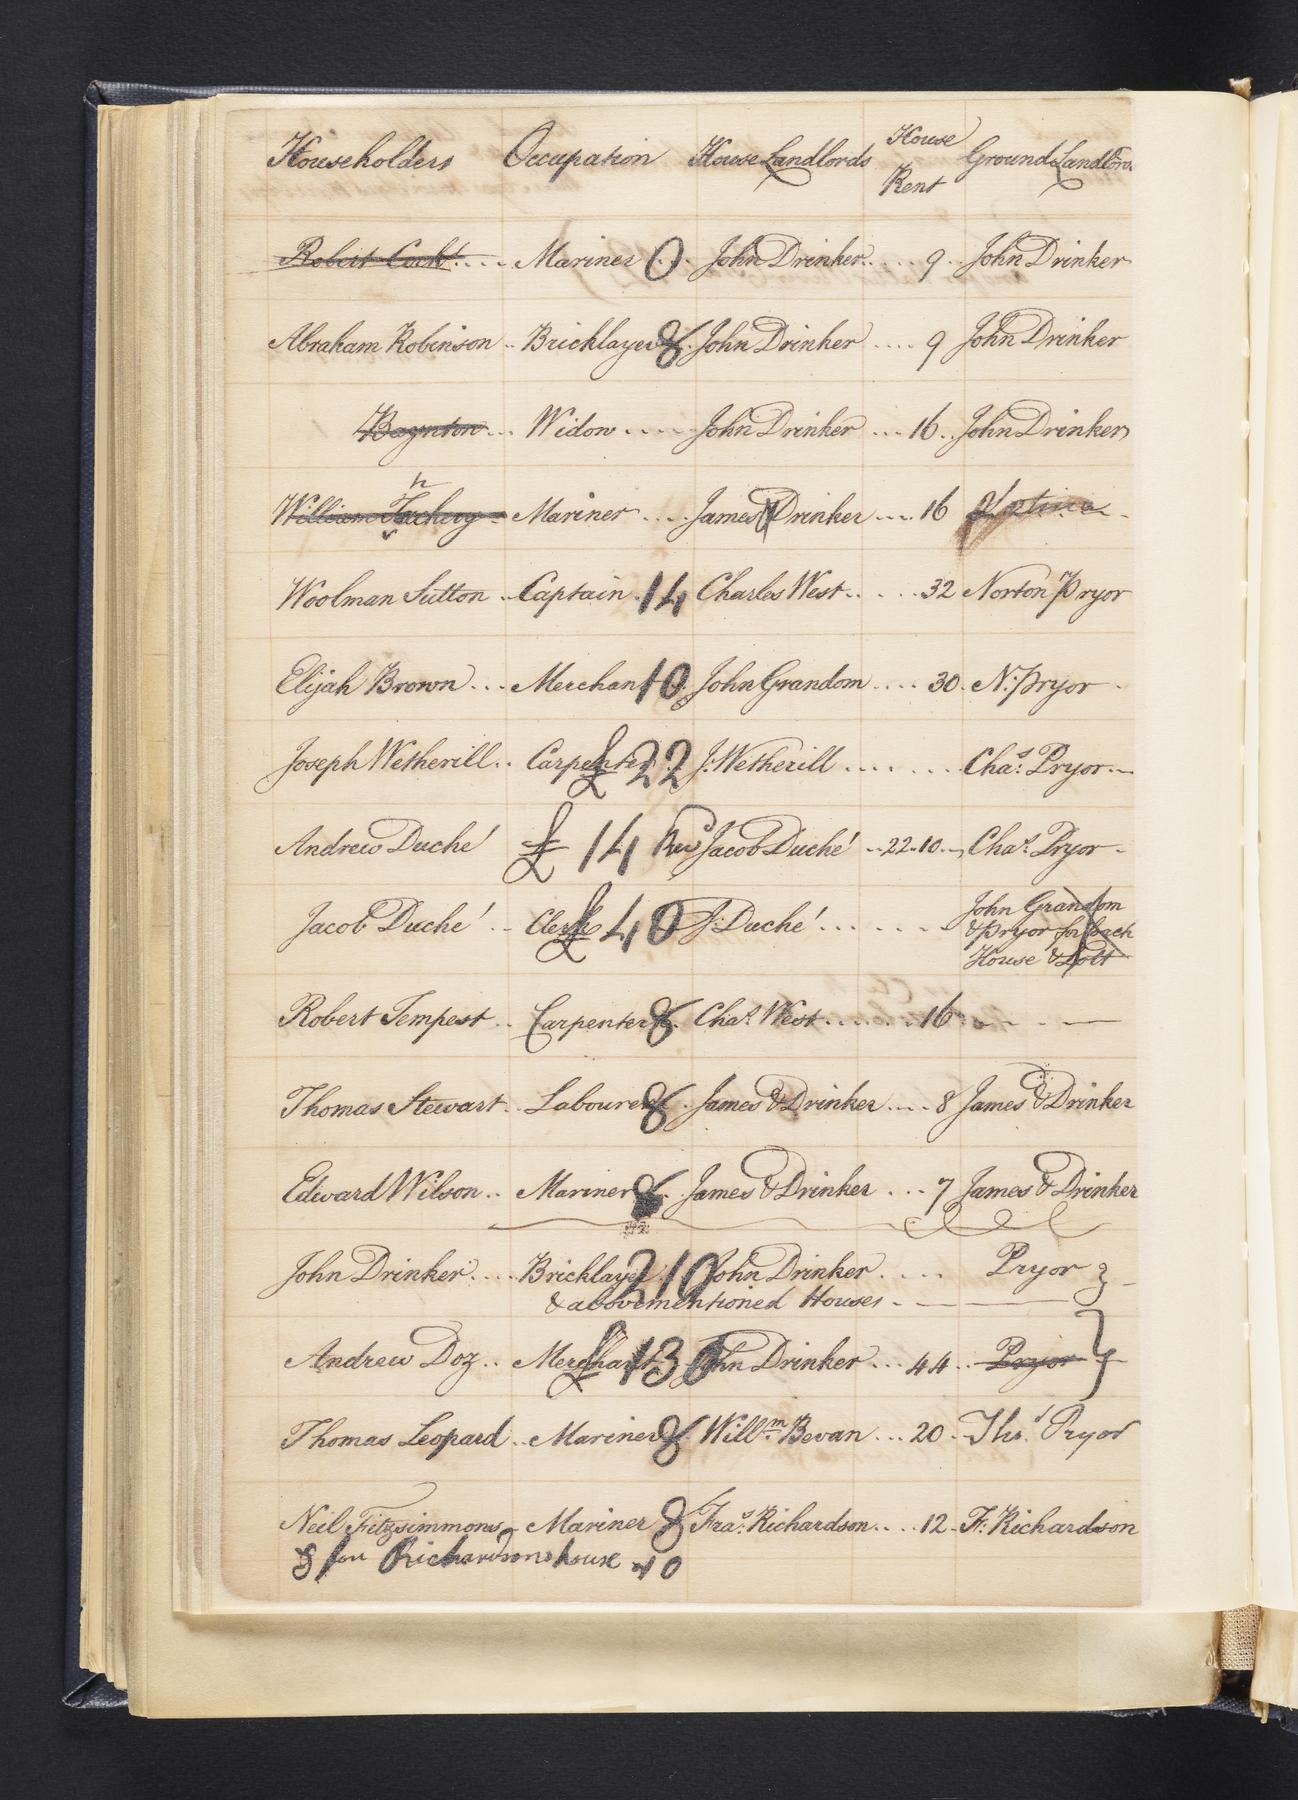 Householders Occupation House Landlords House Rent Ground Landlords
Robert Cockt.... Mariner 0 John Drinker.... 9.. John Drinker
Abraham Robinson .. Bricklayer 8 John Drinker .... 9 John Drinker
Baynton... Widow ..... John Drinker ... 16.. John Drinker
h
William Tackery - Mariner .... James Drinker .... 16
Woolman Sutton .. Captain .14 Charles West..... 32 Norton Pryor
Elijah Brown ... Merchant 10 John Grandom .... 30. N: Pryor
Joseph Wetherill.. Carpenter £ 22 J: Wetherill ....... Chas. Pryor
Andrew Duché £ 14 Revd Jacob Duché ..22.10.. Chas. Pryor
Jacob Duché .. Clerk £ 40 J: Duché ....... John Grandom
& Pryor for each
House & Lott
Robert Tempest .. Carpenter 8. Chas. West ...... 16
Thomas Stewart.. Labourer 8. James & Drinker .... 8 James & Drinker
Edward Wilson .. Mariner 8. James & Drinker ... 7 James & Drinker
John Drinker .... Bricklayer 210 John Drinker .... Pryor
& abovementioned Houses
Andrew Doz .. Merchant £ 130 John Drinker ... 44.. Pryor
Thomas Leopard .. Mariner 8. Willm. Bevan ... 20 - Ths. Pryor
Neil Fitzsimmons - Mariner 8 Fras. Richardson.... 12 - F: Richardson
& for Richardsons house 40